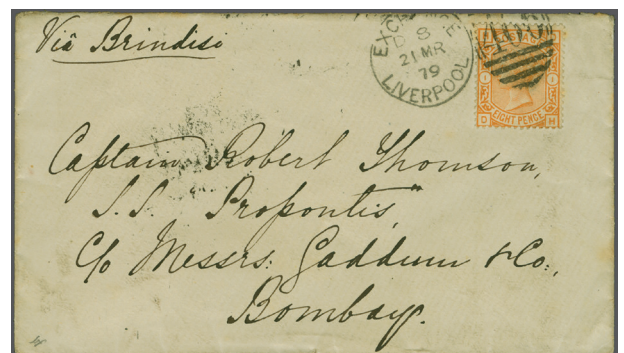 Viâ Brindisi
EXCHANGE
D 8
21 MR
79
LIVERPOOL
EIGHT PENCE
D H
Captain Robert Thomson,
S.S. Propontis"
C/o Messrs: Gaddum & Co:,
Bombay.